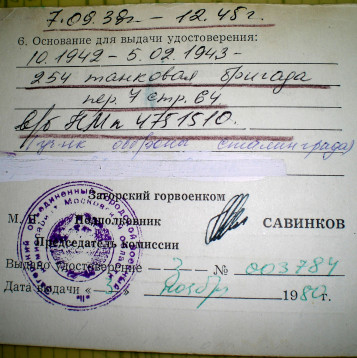 7.09.38г. – 12.45г.
6. Основание для выдачи удостоверения:
10.1942 – 5.02.1943 –
254 танковая бригада
пер. 4 стр. 64
в/б НМп 4751510.
обороны сталинграда)
Загорский горвоенком
М. П. Подполковник САВИНКОВ
Председатель комиссии
Выдано удостоверение – 3 – № 003784
Дата выдачи « 3 » ноябр 1980 г.